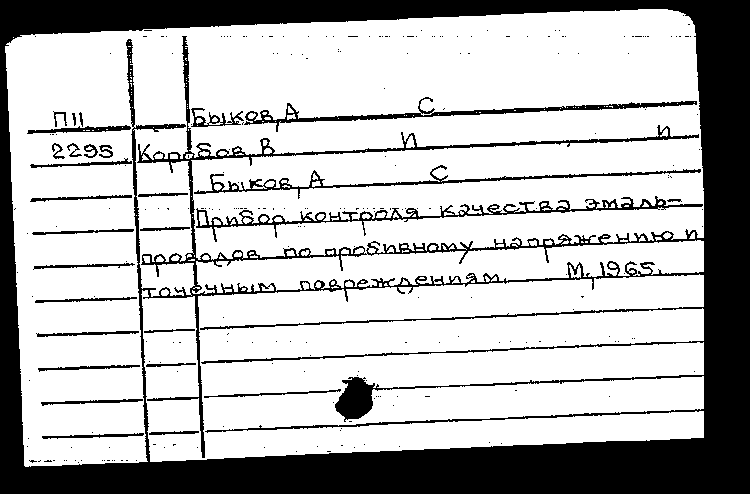 П11 Быков, А С
2295 Коробов, В И и
Быков, А С
Прибор контроля качества эмаль-
проводов по пробивному напряжению и
точечным повреждениям. М., 1965.